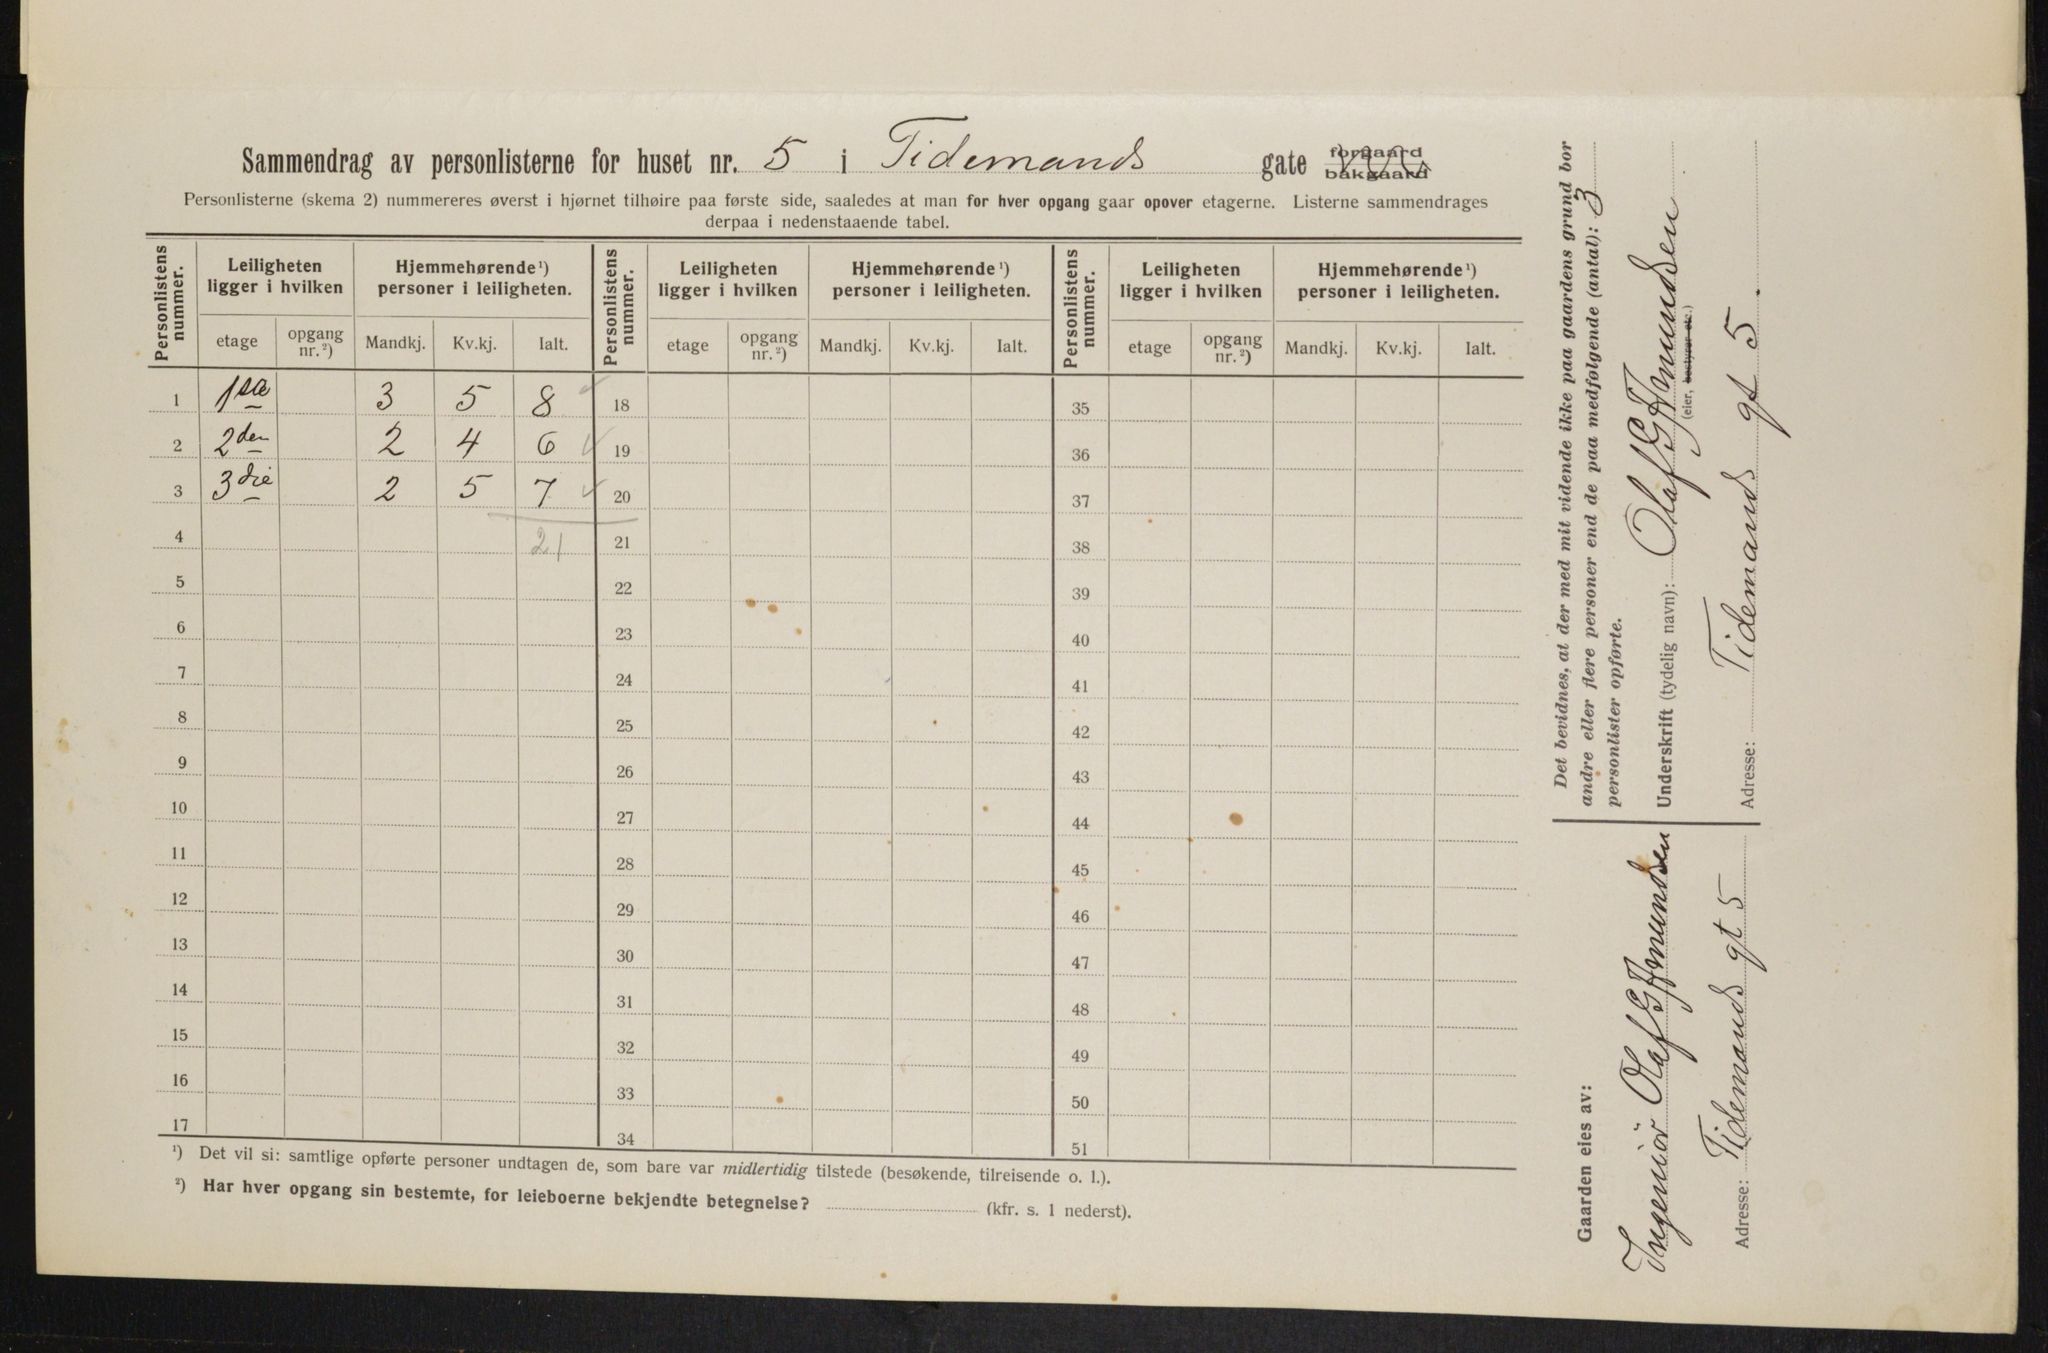 Sammendrag av personlisterne for huset nr. 5 i Tidemands gate forgaard bakgaard
Personlisterne (skema 2) nummereres øverst i hjørnet tilhøire paa første side, saaledes at man for hver opgang gaar opover etagerne. Listerne sammendrages
derpaa i nedenstaaende tabel.
Personlistens nummer. Leiligheten ligger i hvilken Hjemmehørende ¹) personer i leiligheten. Personlistens nummer. Leiligheten ligger i hvilken Hjemmehørende ¹) personer i leiligheten. Personlistens nummer. Leiligheten ligger i hvilken Hjemmehørende ¹) personer i leiligheten.
etage opgang nr. ²) Mandkj. Kv.kj. Ialt. etage opgang nr. ²) Mandkj. Kv.kj. Ialt. etage opgang nr. ²) Mandkj. Kv.kj. Ialt.
1 1ste 3 5 8 18 35
2 2den 2 4 6 19 36
3 3die 2 5 7 20 37
4 21 21 38
5 22 39
6 23 40
7 24 41
8 25 42
9 26 43
10 27 44
11 28 45
12 29 46
13 30 47
14 31 48
15 32 49
16 33 50
17 34 51
¹) Det vil si: samtlige opførte personer undtagen de, som bare var midlertidig tilstede (besøkende, tilreisende o. l.).
²) Har hver opgang sin bestemte, for leieboerne bekjendte betegnelse? (kfr. s. 1 nederst).
Det bevidnes, at der med mit vidende ikke paa gaardens grund bor
andre eller flere personer end de paa medfølgende (antal): 3
personlister opførte.
Underskrift (tydelig navn): Olaf G Amundsen
(eier, bestyrer etc.)
Adresse: Tidemands gt 5.
Gaarden eies av:
Ingeniör Olaf G Amundsen
Adresse: Tidemands gt 5